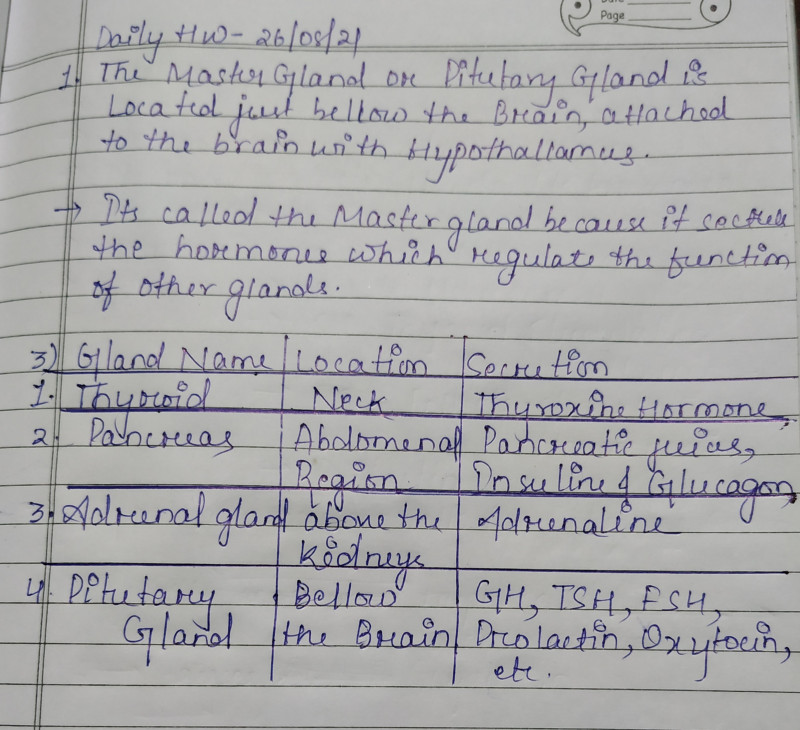 Page
Daily HW- 26/08/21
1. The Master Gland or Pitutary Gland is
Located just bellow the Brain, attached
to the brain with Hypothallamus.
→ Its called the Master gland because it
the hormones which regulate the function
of other glands.
3) Gland Name Location Secretion
1. Thyroid Neck Thyroxine Hormone,
2. Pancreas Abdomenal Pancreatic juius,
Region Insuline & Glucagon,
3. Adrenal gland above the Adrenaline
kidneys
4. Pitutary Bellow GH, TSH, FSH,
Gland the Brain Prolactin, Oxytocin,
etc.